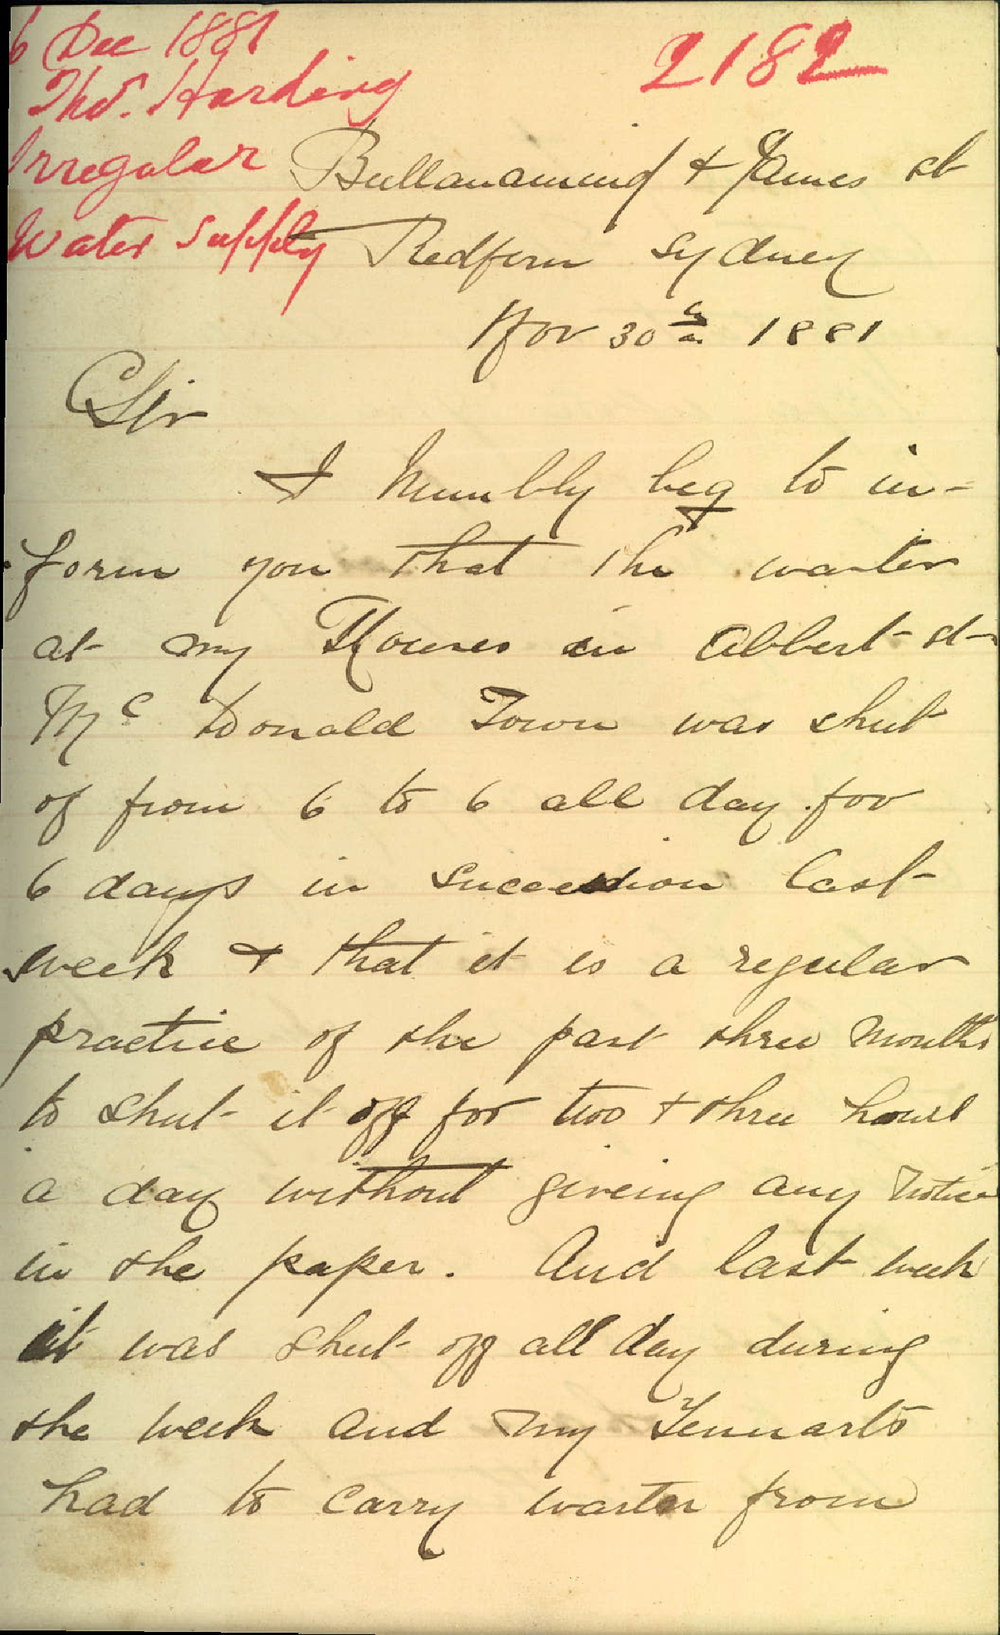 6 Dec 1881
Thos. Harding
Irregular
Water Supply
2182
Bullanaming & James st
Redfern Sydney
Nov 30th 1881
Sir
I Humbly beg to in-
form you that the warter
at my Houses in Abbert st
Mc Donald Town was shut
of from 6 to 6 all day for
6 days in succession last
week & that it is a regular
practice of the past three Months
to shut it off for two & three hours
a day without giveing any Notice
in the paper. And last week
it was shut off all day during
the week and my Tennarts
had to carry warter from